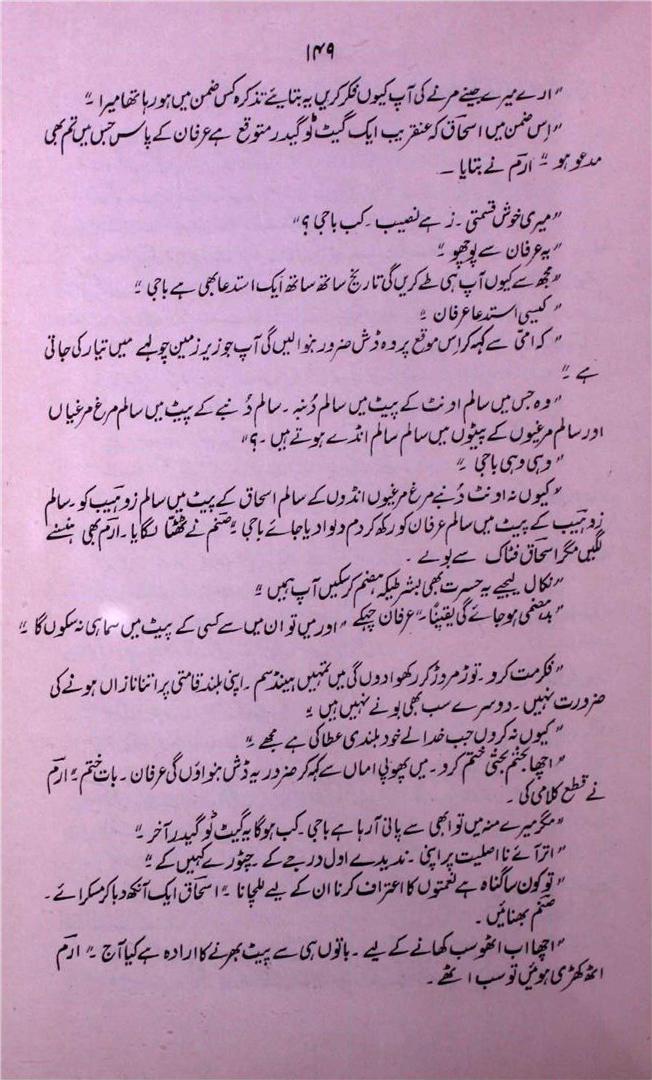 ۱۴۹
"ارے میرے جینے مرنے کی آپ کیوں فکر کریں یہ بتایئے تذکرہ کس ضمن میں ہو رہا تھا میرا ۔"
"اِس ضمن میں اسحٰق کہ عنقریب ایک گیٹ ٹو گیدر متوقع ہے عرفان کے پاس جس میں تم بھی
مدعو ہو ۔" ارم نے بتایا ۔
"میری خوش قسمتی ۔ زہے نصیب ۔ کب باجی ؟"
"یہ عرفان سے پوچھو ۔"
"مجھ سے کیوں آپ ہی طے کریں گی تاریخ ساتھ ساتھ ایک استدعا بھی ہے باجی ۔"
"کیسی استدعا عرفان ۔"
"کہ امی سے کہہ کر اِس موقع پر وہ ڈش ضرور بنوالیں گی آپ جو زیر زمین چولہے میں تیار کی جاتی
ہے ۔"
"وہ جس میں سالم اونٹ کے پیٹ میں سالم دُنبہ ۔ سالم دُنبے کے پیٹ میں سالم مرغ مرغیاں
اور سالم مرغیوں کے پیٹوں میں سالم سالم انڈے ہوتے ہیں ۔؟"
"وہی وہی باجی ۔"
"کیوں نہ اونٹ دُنبے مرغ مرغیوں انڈوں کے سالم اسحاق کے پیٹ میں سالم زوہیب کو ۔ سالم
زوہیب کے پیٹ میں سالم عرفان کو رکھ کر دم دلوا دیا جائے باجی ۔" صنم نے ٹھٹھا لگایا ۔ ارم بھی ہنسنے
لگیں مگر اسحاق فٹاک سے بولے ۔
"نکال لیجیے یہ حسرت بھی بشرطیکہ ہضم کر سکیں آپ ہمیں ۔"
"بدہضمی ہو جائے گی یقیناً ۔" عرفان چہکے "اور میں تو ان میں سے کسی کے پیٹ میں سما ہی نہ سکوں گا ۔"
"فکر مت کرو ۔ توڑ مروڑ کر رکھوا دوں گی میں تمہیں ہینڈسم ۔ اپنی بلند قامتی پر اتنا نازاں ہونے کی
ضرورت نہیں ۔ دوسرے سب بھی بونے نہیں ہیں ۔"
"کیوں نہ کروں جب خدا نے خود بلندی عطا کی ہے مجھے ۔"
"اچھا بختم بختی ختم کرو ۔ میں پھوپی اماں سے کہہ کر ضرور یہ ڈش بنواؤں گی عرفان ۔ بات ختم ۔" ارم
نے قطع کلامی کی ۔
"مگر میرے منہ میں تو ابھی سے پانی آ رہا ہے باجی ۔ کب ہوگا یہ گیٹ ٹو گیدر آخر ۔"
"اتر آئے نا اصلیت پر اپنی ۔ ندیدے اول درجے کے ۔ چٹورے کہیں کے ۔"
"تو کون سا گناہ ہے نعمتوں کا اعتراف کرنا ان کے لیے للچانا ۔" اسحاق ایک آنکھ دبا کر مسکرائے ۔
صنم بھنائیں ۔
"اچھا اب اٹھو سب کھانے کے لیے ۔ باتوں ہی سے پیٹ بھرنے کا ارادہ ہے کیا آج ۔" ارم
اٹھ کھڑی ہوئیں تو سب اٹھے ۔